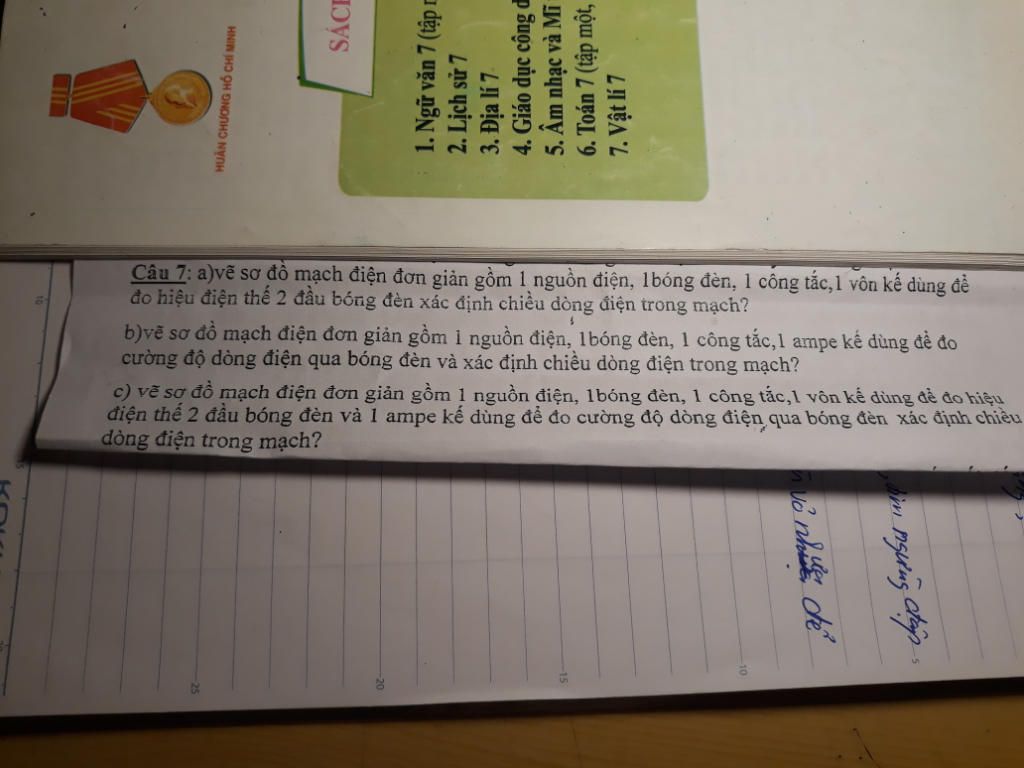 HUÂN CHƯƠNG HỒ CHÍ MINH
SÁCH
1. Ngữ văn 7 (tập
2. Lịch sử 7
3. Địa lí 7
4. Giáo dục công
5. Âm nhạc và Mĩ
6. Toán 7 (tập một,
7. Vật lí 7
Câu 7: a)vẽ sơ đồ mạch điện đơn giản gồm 1 nguồn điện, 1bóng đèn, 1 công tắc,1 vôn kế dùng để
đo hiệu điện thế 2 đầu bóng đèn xác định chiều dòng điện trong mạch?
b)vẽ sơ đồ mạch điện đơn giản gồm 1 nguồn điện, 1bóng đèn, 1 công tắc,1 ampe kế dùng để đo
cường độ dòng điện qua bóng đèn và xác định chiều dòng điện trong mạch?
c) vẽ sơ đồ mạch điện đơn giản gồm 1 nguồn điện, 1bóng đèn, 1 công tắc,1 vôn kế dùng để đo hiệu
điện thế 2 đầu bóng đèn và 1 ampe kế dùng để đo cường độ dòng điện qua bóng đèn xác định chiều
dòng điện trong mạch?
10
25
20
15
10
5